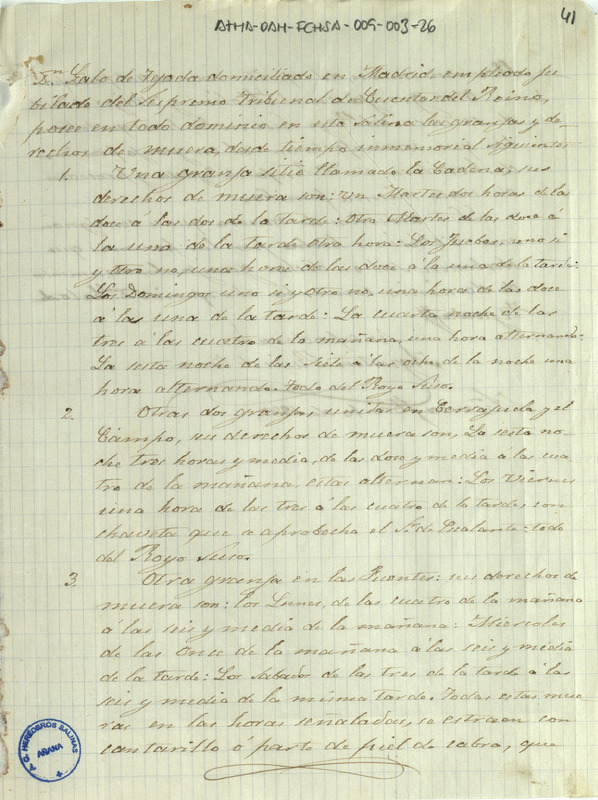 ATHA-DAH-FCHSA-009-003-26
41
Dn Galo de Tejada domiciliado en Madrid, empleado ju
bilado del Supremo Tribunal de Cuentas del Reino,
posee en todo dominio en esta Salina las granjas y de-
rechos de muera, desde tiempo inmemorial siguientes
1. Una granja sitio llamado la Cadena, sus
derechos de muera son: Un Martes dos horas de las
doce á las dos de la tarde: Otro Martes de las doce á
la una de la tarde otra hora: Los Juebes, uno si
y otro no, una hora de las doce á la una de la tarde:
Los Domingos uno si y otro no, una hora de las doce
á las una de la tarde: La cuarta noche de las
tres á las cuatro de la mañana, una hora alternando:
La sesta noche de las siete á las ocho de la noche una
hora alternando. Todo del Royo Suso.
2. Otras dos granjas, unidas en Cerrajuela y el
Campo, sus derechos de muera son, La sesta no-
che tres horas y media, de las doce y media á las cua
tro de la mañana, estas alternan: Los Viernes
una hora de las tres á las cuatro de la tarde, con
chaveta que se aprobecha el Sr de Escalante: todo
del Royo Suso.
3. Otra granja en las Fuentes: sus derechos de
muera son: los Lunes, de las cuatro de la mañana
á las seis y media de la mañana: Miercoles
de las once de la mañana á las seis y media
de la tarde: Los Sabados de las tres de la tarde á las
seis y media de la misma tarde. Todas estas mue
ras en las horas señaladas, se estraen con
cantarillo ó parte de piel de cabra, que
HEREDEROS SALINAS
AÑANA